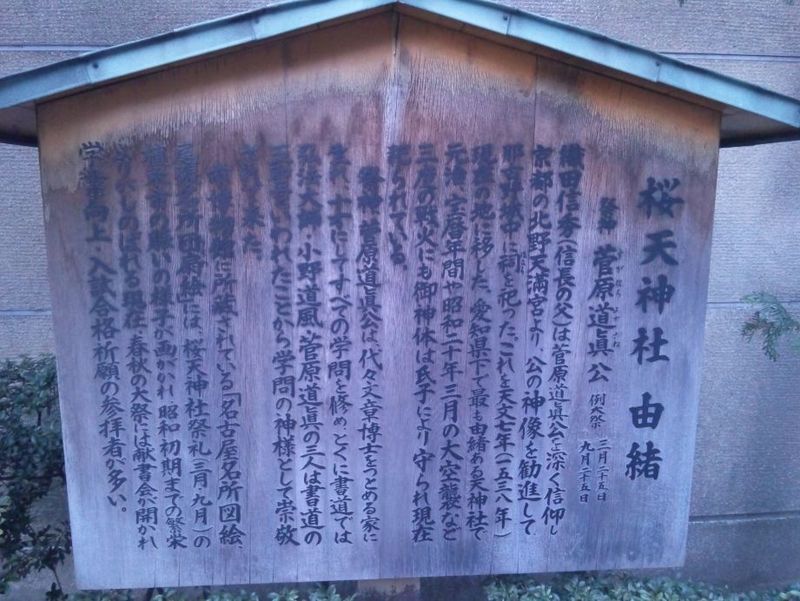 桜天神社 由緒
祭神 菅原道眞公 例大祭 三月二十五日
九月二十五日
すがわら みちざね
織田信秀(信長の父)は菅原道眞公を深く信仰し
京都の北野天満宮より、公の神像を勧進して
那古野城中に祠を祀った。これを天文七年(一五三八年)
現在の地に移した。愛知県下で最も由緒ある天神社で
元治、宝暦年間や昭和二十年三月の大空襲など
三度の戦火にも御神体は氏子により守られ現在
祀られている。
祭神 菅原道眞公は、代々文章博士をつとめる家に
生れ、十才にしてすべての学問を修め、とくに書道では
弘法大師・小野道風・菅原道眞の三人は書道の
三聖といわれたことから学問の神様として崇敬
されて来た。
市博物館に所蔵されている「名古屋名所図絵、
名所団扇絵」には、桜天神社祭礼(三月、九月)の
植木市の賑いの様子が画かれ、昭和初期までの繁栄
がしのばれる。現在、春秋の大祭には献書会が開かれ
学業向上・入試合格祈願の参拝者が多い。